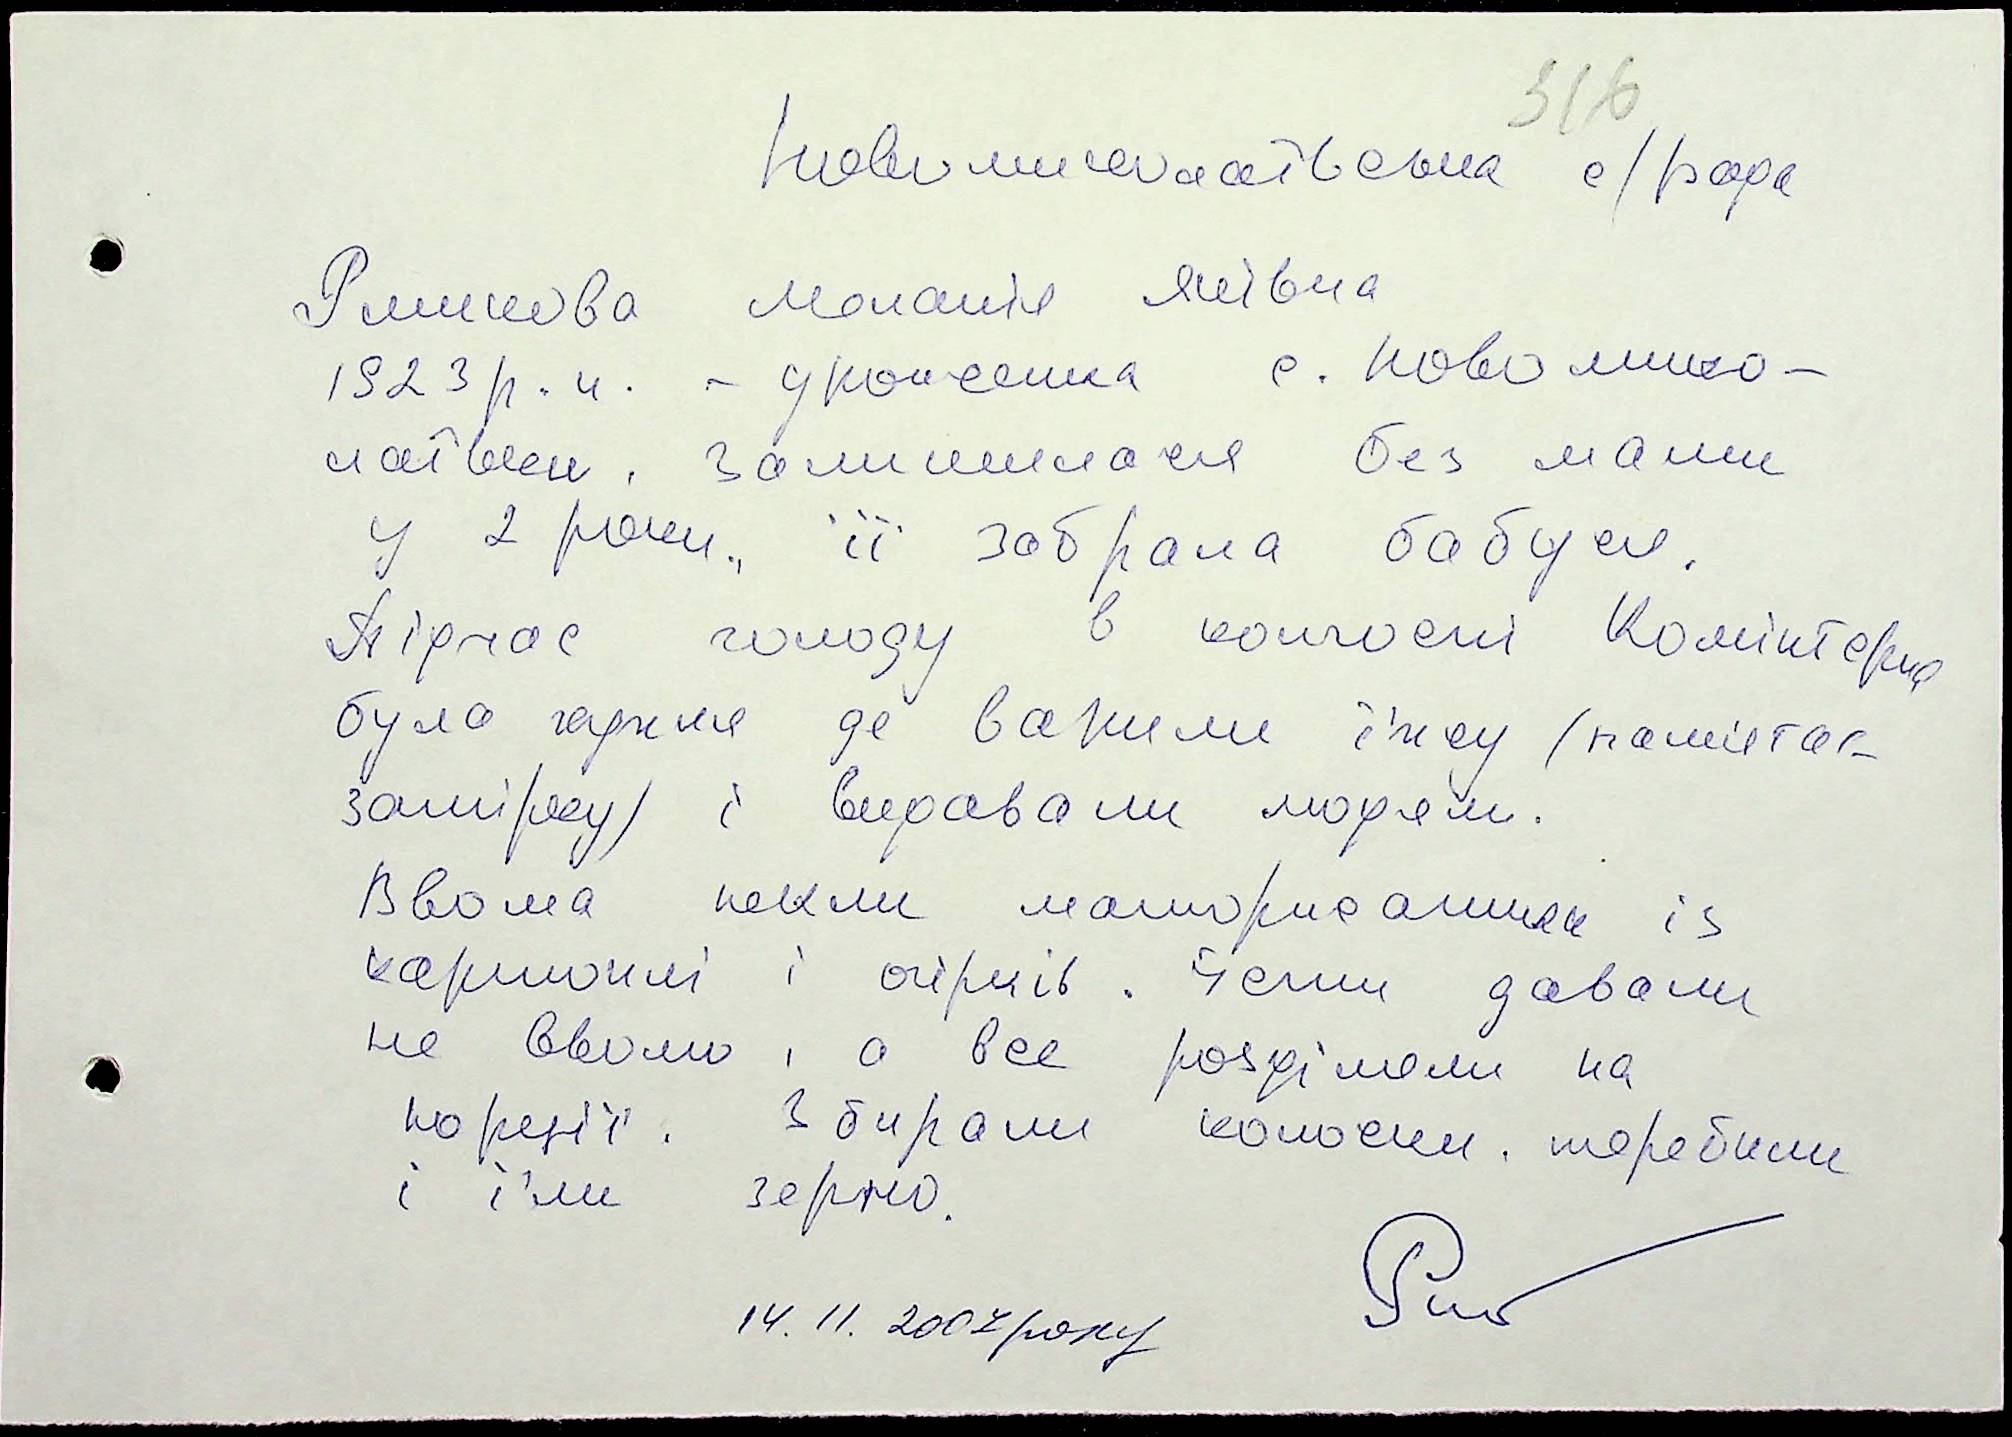 316
Новомиколаївська с/рада
Рмикова Меланія Яківна
1923 р.н. - уроженка с. Новомико-
лаївки, залишилася без мами
у 2 роки., її забрала бабуся.
Підчас голоду в колгоспі Комінтерна
була кухня де варили їжу (памʼятає
затірку) і видавали людям.
Вдома пекли маторжаники із
картоплі і очірків. Їсти давали
не вволю, а все розділяли на
порції. Збирали колоски, теребили
і їли зерно.
14.11.2007 року